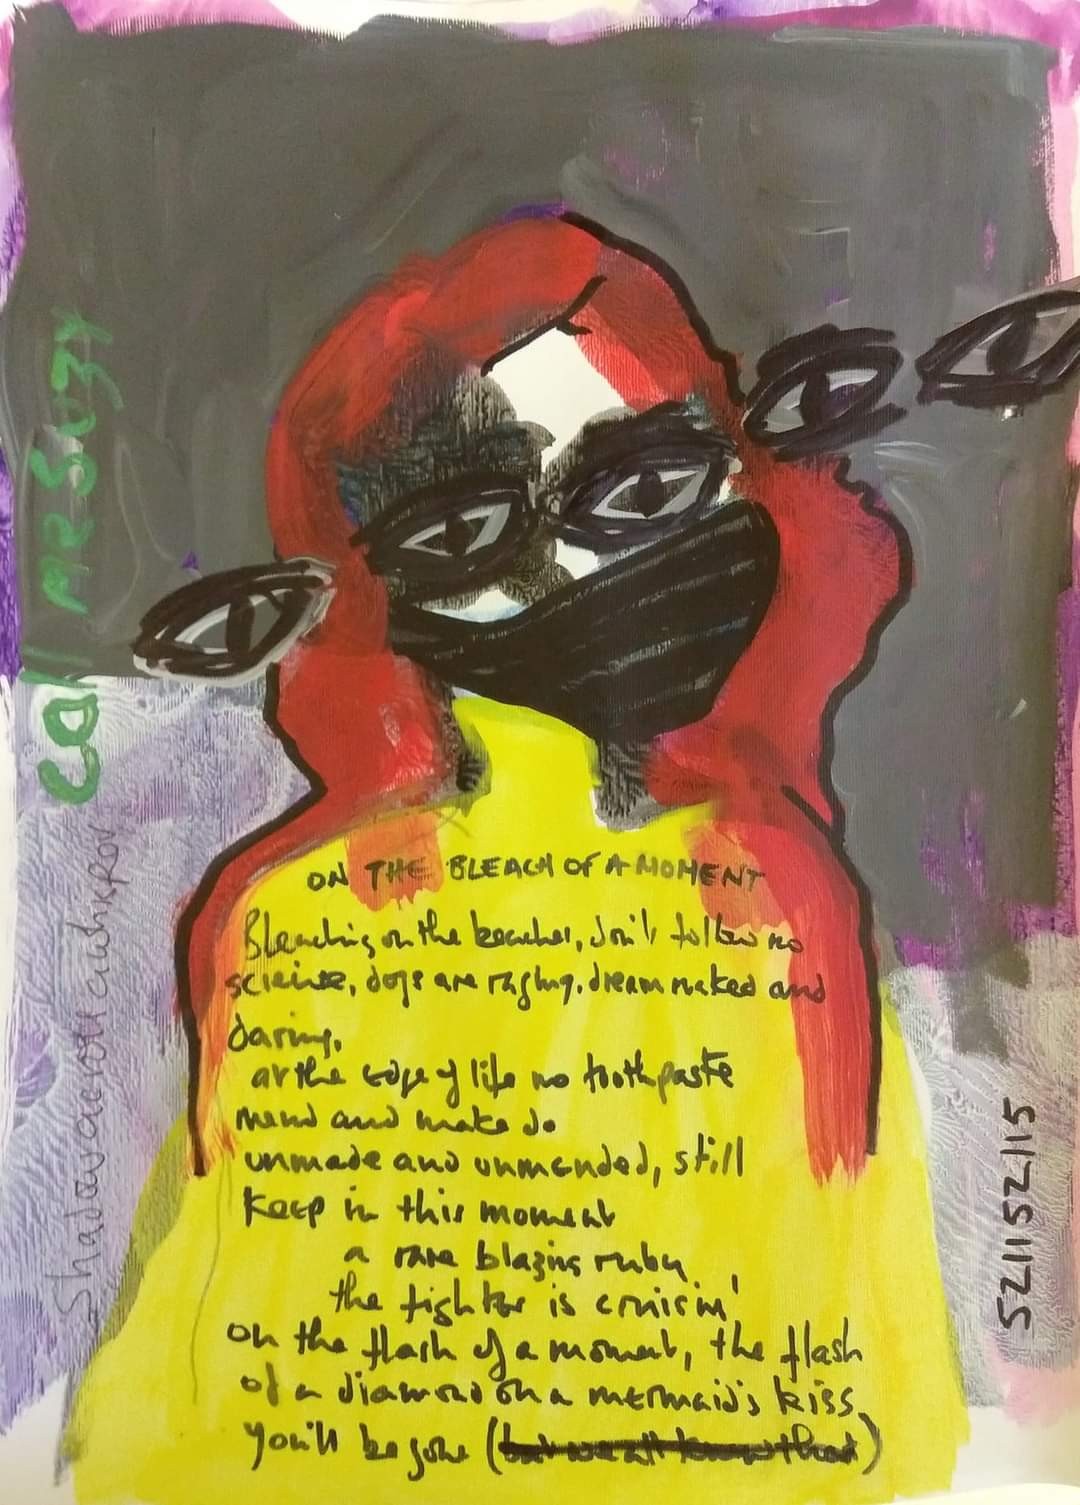 call me Suzy
ON THE BLEACH OF A MOMENT
Bleaching on the beaches, don't follow no
science, dogs are raging. dream naked and
daring,
at the edge of life no toothpaste
mend and make do
unmade and unmended, still
keep in this moment
a rare blazing ruby
the fighter is cruisin'
on the flash of a moment, the flash
of a diamond on a mermaid's kiss
you'll be gone (but we all know that)
5211521115